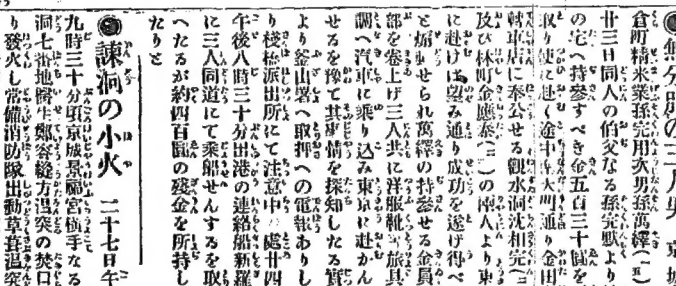 無分別の三人男　京城
倉町精米業孫完用次男孫萬繹（一五）
廿三日同人の伯父なる孫完默より
の宅へ持參すべき金五百三十圓を
取り使に赴く途中南大門通り金田
轉車店に奉公せる觀水洞沈相完（二
及び林町金應泰（二〇）の兩人より東
に赴けば望み通り成功を遂げ得べ
と煽動せられ萬繹の持參せる金員
部を卷上げ三人共に洋服靴旅具
調へ汽車に乘り込み東京に赴かん
せるを豫て其事情を探知したる實
より釜山署へ取押への電報ありし
り棧橋派出所にて注意中の處廿四
午後八時三十分出港の連絡船新羅
に三人同道にて乘船せんするを取
へたるが約四百圓の殘金を所持し
たりと
●諫洞の小火　二十七日午
九時三十分頃京城景福宮橫手なる
洞七番地卿生鄭容縫方溫突の焚口
り發火し常備消防隊出動草葺溫突